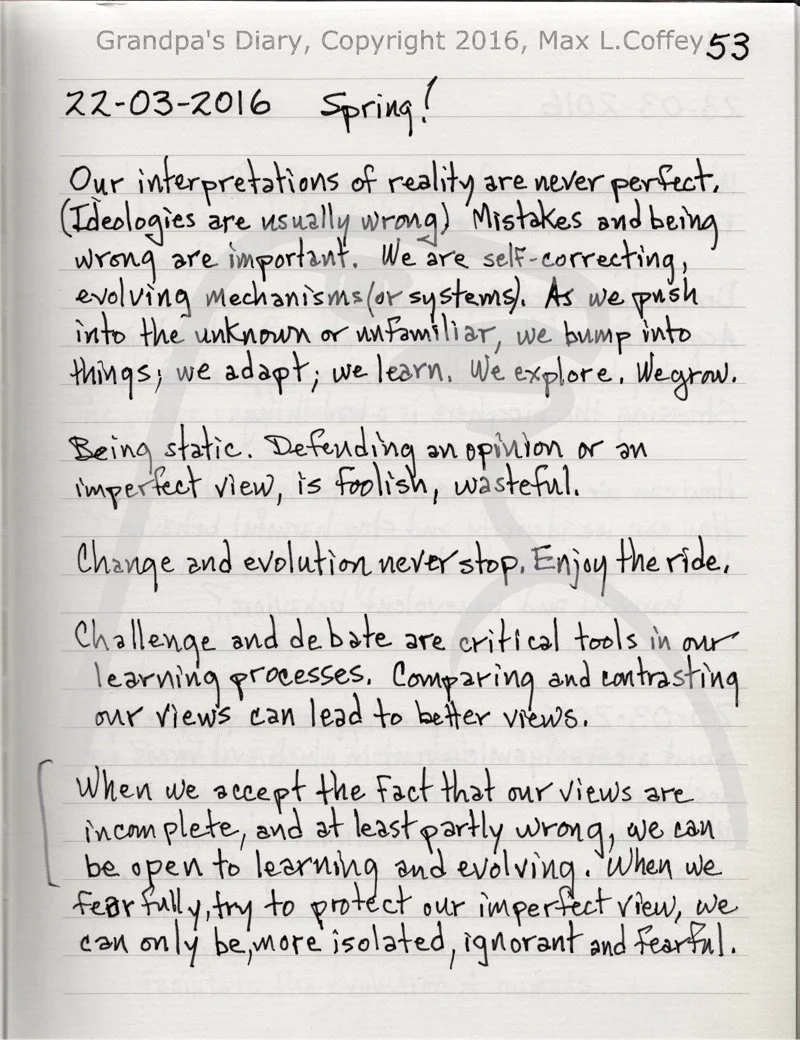 Grandpa's Diary, Copyright 2016, Max L.Coffey 53
22-03-2016 Spring!
Our interpretations of reality are never perfect.
(Ideologies are usually wrong) Mistakes and being
wrong are important. We are self-correcting,
evolving mechanisms (or systems). As we push
into the unknown or unfamiliar, we bump into
things; we adapt; we learn. We explore. We grow.
Being static. Defending an opinion or an
imperfect view, is foolish, wasteful.
Change and evolution never stop. Enjoy the ride.
Challenge and debate are critical tools in our
learning processes. Comparing and contrasting
our views can lead to better views.
When we accept the fact that our views are
incomplete, and at least partly wrong, we can
be open to learning and evolving. When we
fearfully, try to protect our imperfect view, we
can only be, more isolated, ignorant and fearful.